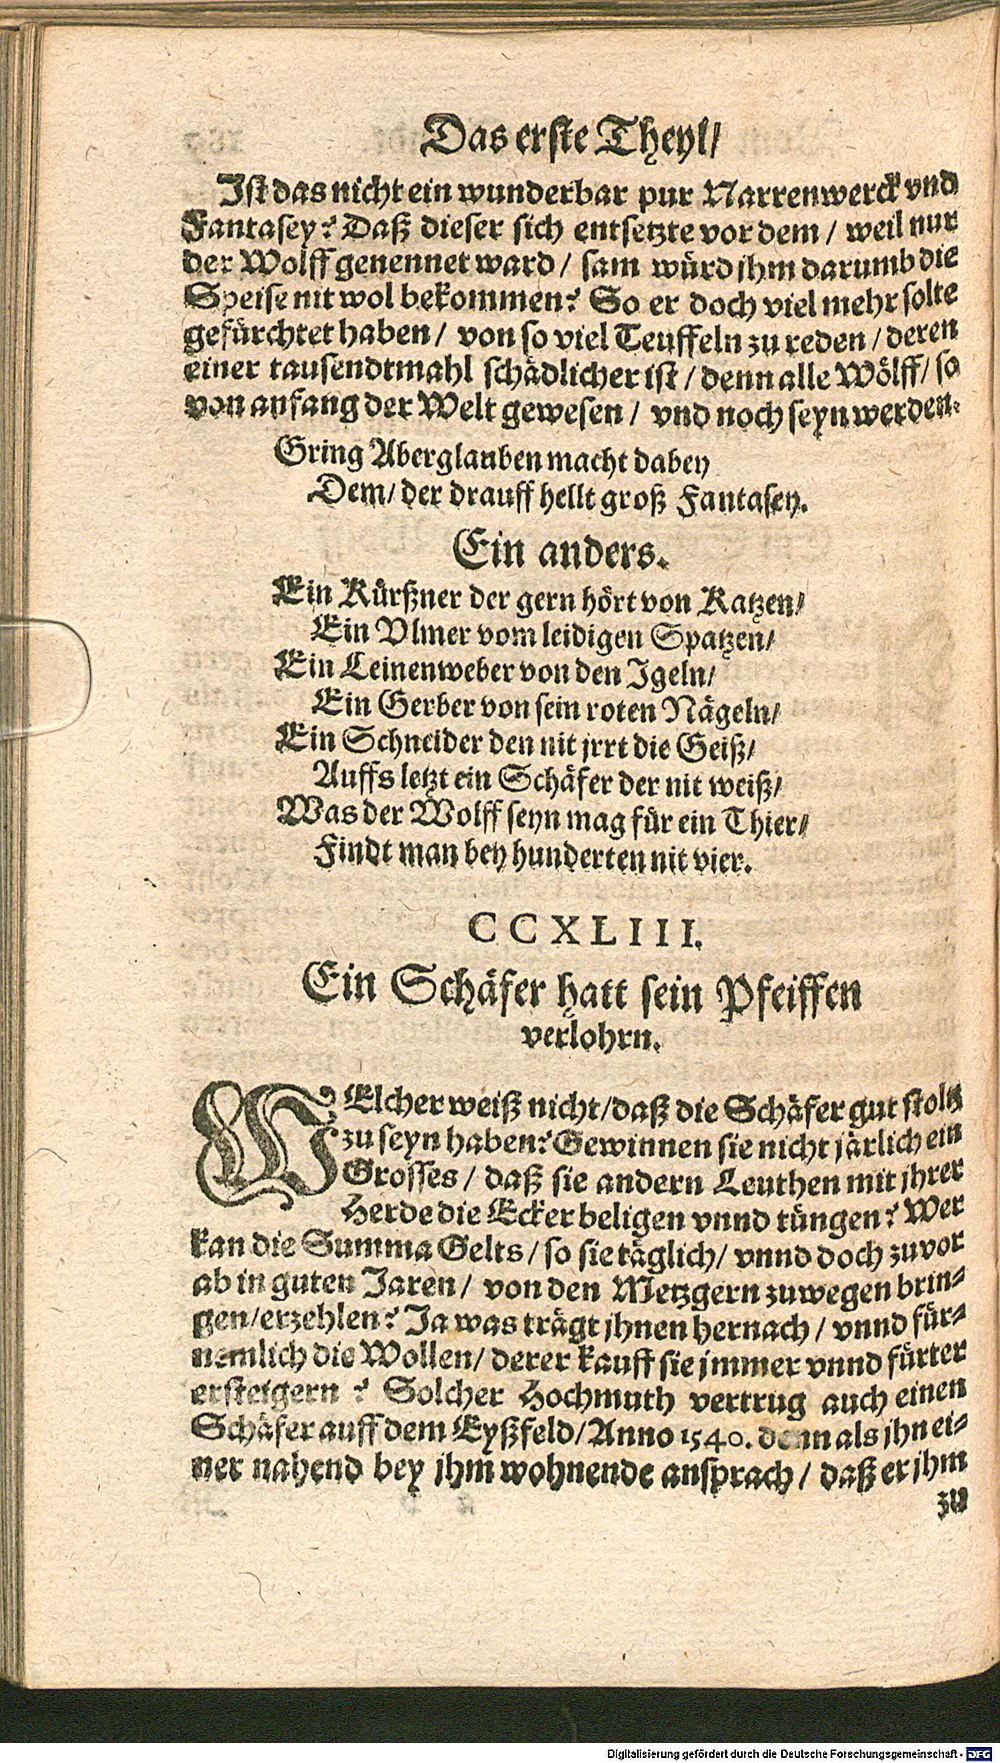 Das erste Theyl/
Ist das nicht ein wunderbar pur Narrenwerck vnd
Fantasey? Daß dieser sich entsetzte vor dem / weil nur
der Wolff genennet ward / sam würd jhm darumb die
Speise nit wol bekommen? So er doch viel mehr solte
gefürchtet haben / von so viel Teuffeln zu reden / deren
einer tausendtmahl schädlicher ist / denn alle Wölff / so
von anfang der Welt gewesen / vnd noch seyn werden.
Gring Aberglauben macht dabey
Dem / der drauff hellt groß Fantasey.
Ein anders.
Ein Kürßner der gern hört von Katzen/
Ein Vlmer vom leidigen Spatzen/
Ein Leinenweber von den Igeln/
Ein Gerber von sein roten Nägeln/
Ein Schneider den nit jrrt die Geiß/
Auffs letzt ein Schäfer der nit weiß/
Was der Wolff seyn mag für ein Thier/
Findt man bey hunderten nit vier.
CCXLIII.
Ein Schäfer hatt sein Pfeiffen
verlohrn.
WElcher weiß nicht/daß die Schäfer gut stoltz
zu seyn haben? Gewinnen sie nicht järlich ein
Grosses / daß sie andern Leuthen mit jhrer
Herde die Ecker beligen vnnd tüngen? Wer
kan die Summa Gelts / so sie täglich / vnnd doch zuvor
ab in guten Jaren / von den Metzgern zuwegen brin-
gen/erzehlen? Ja was trägt jhnen hernach / vnnd für-
nemlich die Wollen / derer kauff sie jmmer vnnd fürter
ersteigern ? Solcher Hochmuth vertrug auch einen
Schäfer auff dem Eyßfeld/Anno 1540. denn als jhn ei-
ner nahend bey jhm wohnende ansprach / daß er jhm
zu
Digitalisierung gefördert durch die Deutsche Forschungsgemeinschaft - DFG